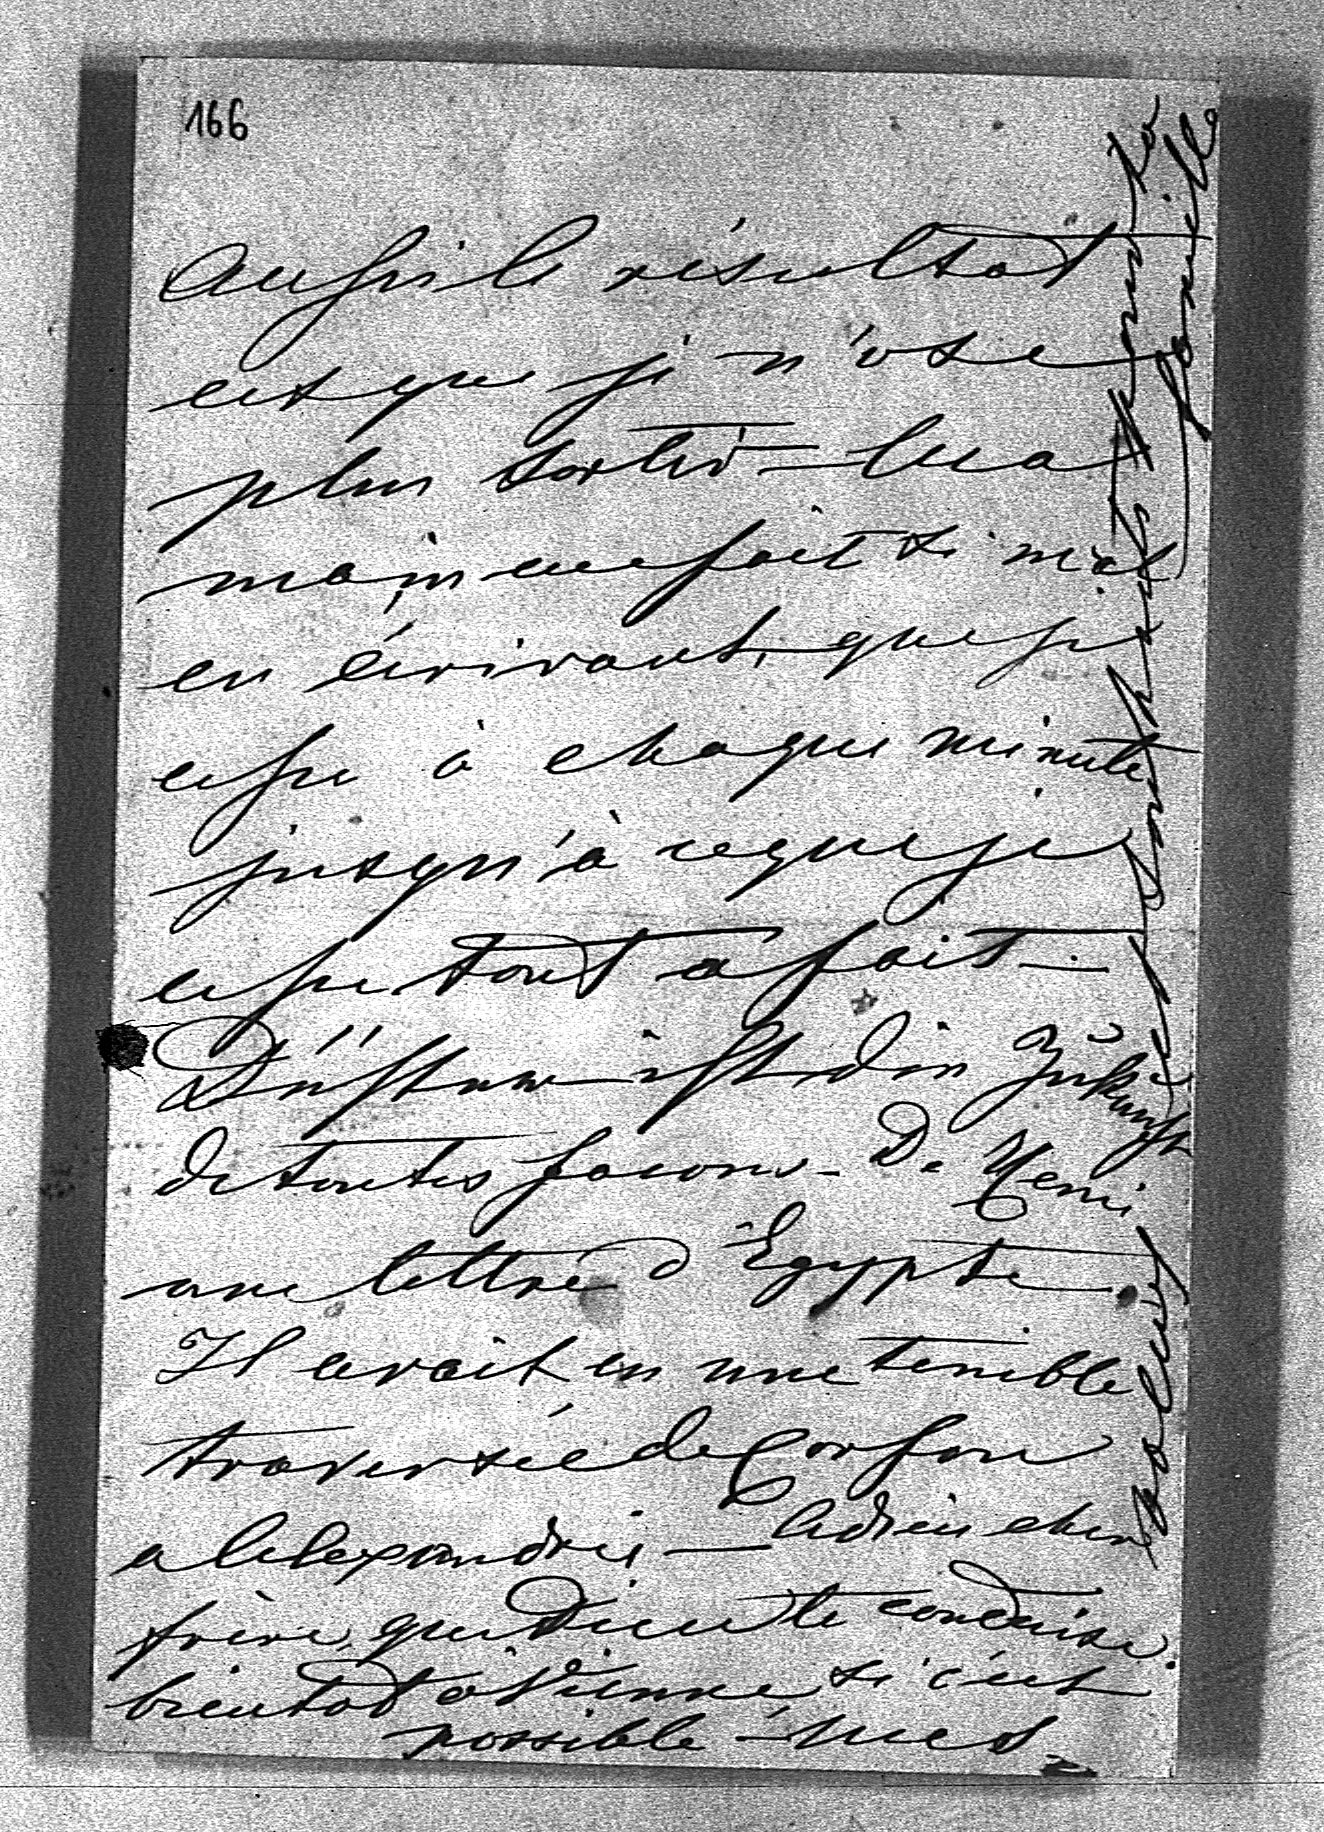 166
Aussi le résultat
est que je n'ose
plus sortir – Ma
main me fait si mal
en écrivant, que je
cesse à chaque minute
jusqu'à ce que je
cesse tout a fait –
Düster ist die Zukunft
de toutes façons – De Remi
une lettre d'Égypte.
Il avait eu une terrible
traversée de Corfou
a Alexandrie – Adieu cher
frère, que Dieu te conduise
bientot à Vienne si c'est
possible – mes
tendres souhaits pour ta
famille